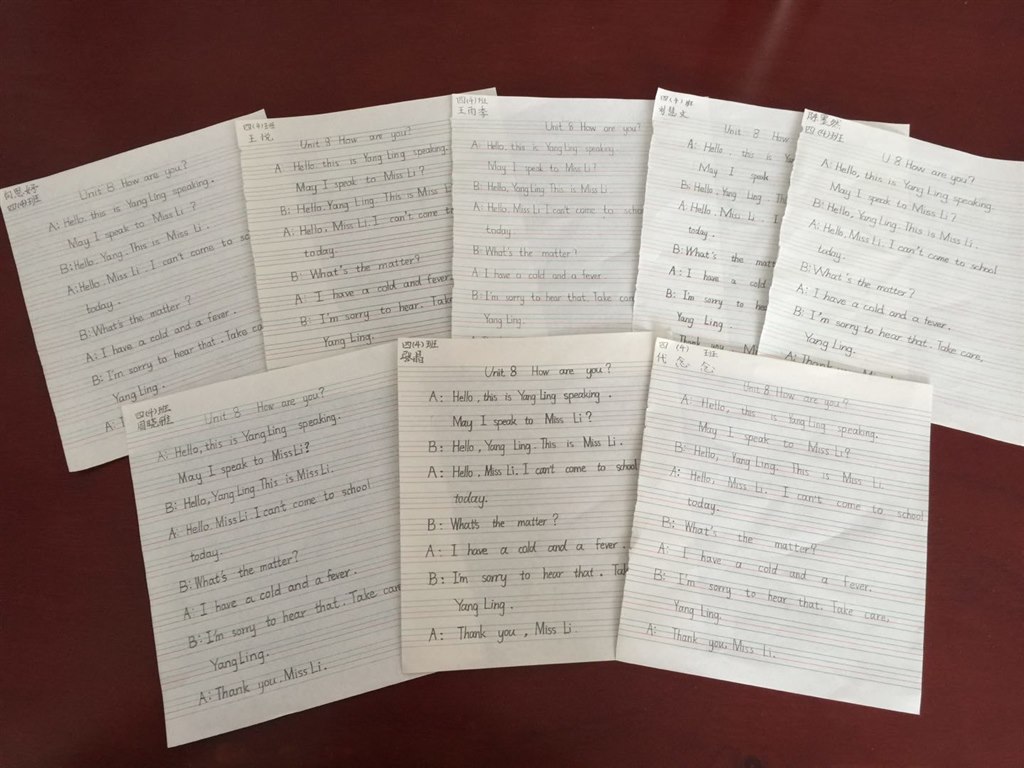 四(4)班
Unit 8 How are you?
A: Hello, this is Yang Ling speaking.
May I speak to Miss Li?
B: Hello, Yang. This is Miss Li.
A: Hello. Miss Li. I can't come to sc
today.
B: What's the matter?
A: I have a cold and a fever.
B: I'm sorry to hear that. Take ca
Yang Ling.
A:
四(4)班
王悦
Unit 8 How are you?
A: Hello, this is Yang Ling speaking.
May I speak to Miss Li?
B: Hello. Yang Ling. This is Miss L
A: Hello. Miss Li. I can't come to
today.
B: What's the matter?
A: I have a cold and fever.
B: I'm sorry to hear. Take
Yang Ling.
四(4)班
王雨季
Unit 8 How are you?
A: Hello, this is Yang Ling speaking.
May I speak to Miss Li?
B: Hello, Yang Ling This is Miss Li
A: Hello. Miss Li I can't come to scho
today
B: What's the matter?
A: I have a cold and a fever.
B: I'm sorry to hear that. Take car
Yang Ling.
四(4)班
刘慧文
Unit 8 How a
A: Hello, this is Y
May I speak
B: Hello, Yang Ling. Th
A: Hello. Miss Li I
today.
B: What's the matt
A: I have a cold
B: I'm sorry to he
Yang Ling.
Thank you, Miss
四(4)班
U 8 How are you?
A: Hello, this is Yang Ling speaking.
May I speak to Miss Li?
B: Hello, Yang Ling. This is Miss Li.
A: Hello, Miss Li. I can't come to school
today.
B: What's the matter?
A: I have a cold and a fever.
B: I'm sorry to hear that. Take care,
Yang Ling.
A: Thank
四(4)班
周晓雅
Unit 8 How are you?
A: Hello, this is Yang Ling speaking.
May I speak to Miss Li?
B: Hello, Yang Ling This is Miss Li.
A: Hello Miss Li I can't come to school
today.
B: What's the matter?
A: I have a cold and a fever.
B: I'm sorry to hear that. Take care
Yang Ling.
A: Thank you. Miss Li.
四(4)班
Unit 8 How are you?
A: Hello, this is Yang Ling speaking.
May I speak to Miss Li?
B: Hello, Yang Ling. This is Miss Li.
A: Hello, Miss Li. I can't come to school
today.
B: What's the matter?
A: I have a cold and a fever.
B: I'm sorry to hear that. Tak
Yang Ling.
A: Thank you, Miss Li.
四 (4) 班
代念念
Unit 8 How are you?
A: Hello, this is Yang Ling speaking.
May I speak to Miss Li?
B: Hello, Yang Ling. This is Miss Li.
A: Hello, Miss Li. I can't come to school
today.
B: What's the matter?
A: I have a cold and a fever.
B: I'm sorry to hear that. Take care,
Yang Ling.
A: Thank you, Miss Li.